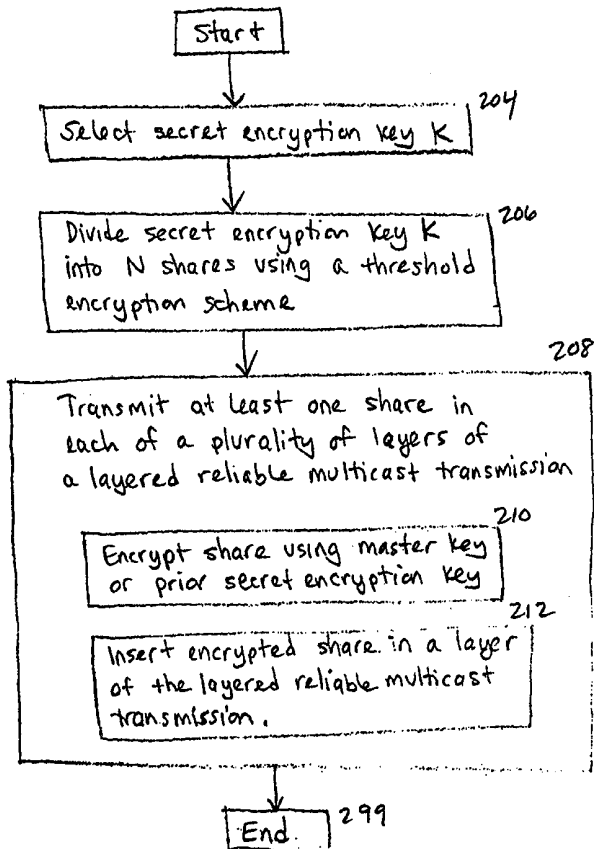 Start
204
Select secret encryption key K
206
Divide secret encryption key K
into N shares using a threshold
encryption scheme
208
Transmit at least one share in
each of a plurality of layers of
a layered reliable multicast transmission
210
Encrypt share using master key
or prior secret encryption key
212
Insert encrypted share in a layer
of the layered reliable multicast
transmission.
End.
299